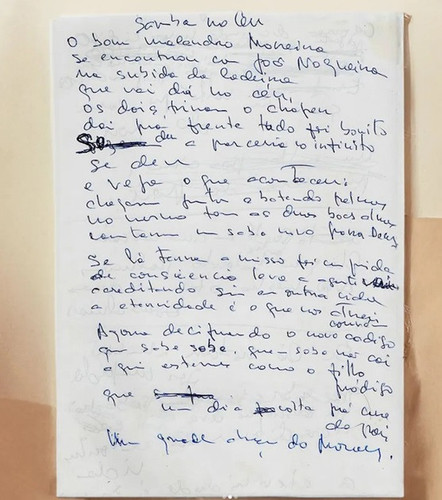 Samba no Céu
O bom malandro Moreira
se encontrou com José Nogueira
na subida da ladeira
que vai dá no céu,
os dois, tiram o chapeu
dai pra frente tudo foi bonito
da a parceria no infinito
se deu
e veja o que aconteceu:
chegam juntos batendo palmas
no mesmo tom as duas boas almas
cantam um samba novo para Deus
Se lá Terra a missão foi cumprida
de consciencia leve a gente
acreditando sim em outra vida
a eternidade é o que nos
Agora decifrando o novo codigo
que sobe sobe, que sobe não cai
aqui estamos como o filho
pródigo
que
um dia volta pra casa
do pai
Um grande abraço do Moraes.